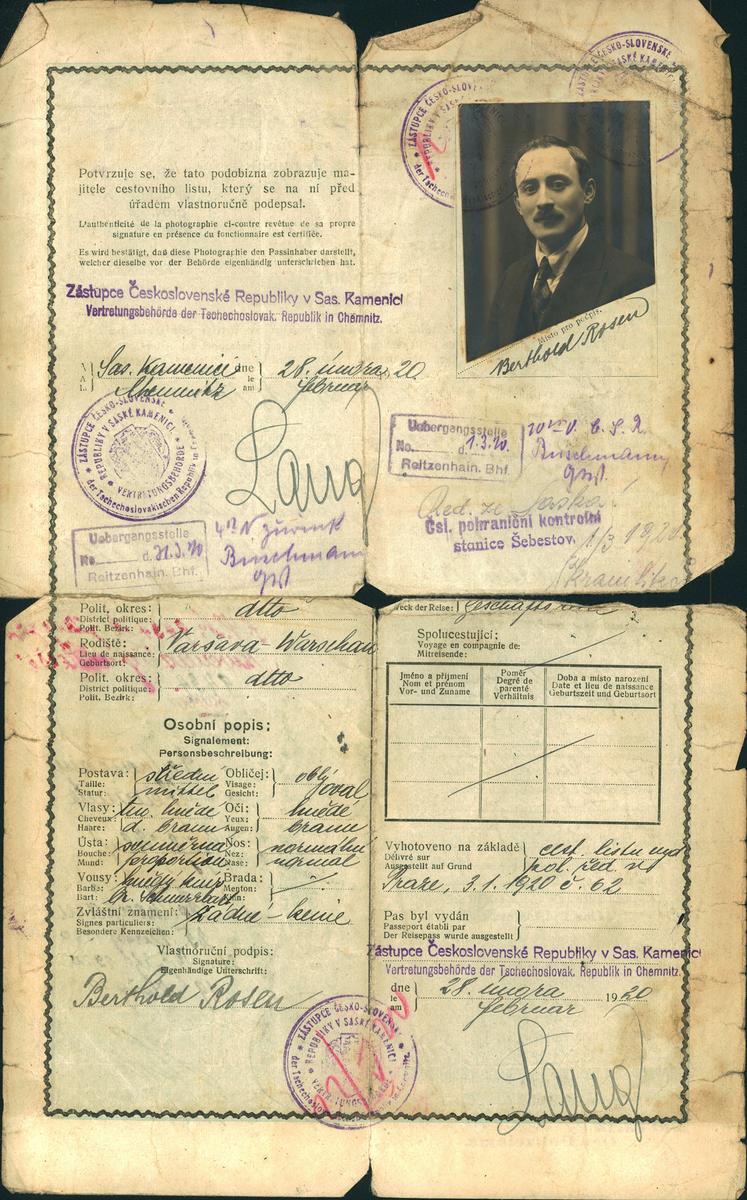 Potvrzuje se, že tato podobizna zobrazuje ma-
jitele cestovního listu, který se na ní před
úřadem vlastnoručně podepsal.
L'authenticité de la photographie ci-contre revêtue de sa propre
signature en présence du fonctionnaire est certifiée.
Es wird bestätigt, daß diese Photographie den Passinhaber darstellt,
welcher dieselbe vor der Behörde eigenhändig unterschrieben hat.
Zástupce Československé Republiky v Sas. Kamenici
Vertretungsbehörde der Tschechoslovak. Republik in Chemnitz.
V
A
I.
Sas. Kamenici dne 28. února 20
Chemnitz le am Februar
ZÁSTUPCE ČESKO-SLOVENSKÉ
REPUBLIKY V SASKÉ KAMENICI
VERTRETUNGSBEHÖRDE
der Tschechoslovakischen Republik in Chemnitz
Lang
Uebergangsstelle
No. d. 31.3.20
Reitzenhain. Bhf.
Buschmann
ZÁSTUPCE ČESKO-SLOVENSKÉ
REPUBLIKY V SASKÉ KAMENICI
Místo pro podpis.
Berthold Rosen
Uebergangsstelle
No. d. 1.3.20
Reitzenhain. Bhf.
Č. S. R.
Buschmann
Čsl. pohraniční kontrolní
stanice Šebestov. 1/3 1920
Polit. okres: dtto
District politique:
Polit. Bezirk:
Rodiště: Varšava - Warschau
Lieu de naissance:
Geburtsort:
Polit. okres: dtto
District politique:
Polit. Bezirk:
Osobní popis:
Signalement:
Personsbeschreibung:
Postava: střední Obličej: oblý
Taille: Visage:
Statur: mittel Gesicht: oval
Vlasy: tm. hnědé Oči: hnědé
Cheveux: Yeux:
Haare: d. braun Augen: braun
Ústa: souměrná Nos: normální
Bouche: Nez:
Mund: proportion Nase: normal
Vousy: hnědý knír Brada:
Barbe: Menton
Bart: br. Schnurrbart Kinn:
Zvláštní znamení: žádné - keine
Signes particuliers:
Besondere Kennzeichen:
Vlastnoruční podpis:
Signature:
Eigenhändige Unterschrift:
Berthold Rosen
ZÁSTUPCE ČESKO-SLOVENSKÉ
REPUBLIKY V SASKÉ KAMENICI
VERTRETUNGSBEHÖRDE
weck der Reise: Geschäftsreise
Spolucestující:
Voyage en compagnie de:
Mitreisende:
Jméno a příjmení
Nom et prénom
Vor- und Zuname
Poměr
Degré de
parenté
Verhältnis
Doba a místo narození
Date et lieu de naissance
Geburtszeit und Geburtsort
Vyhotoveno na základě cest. listu vyd
Délivré sur
Ausgestellt auf Grund pol. řed. v
Praze, 3.1.1920 č. 62
Pas byl vydán
Passeport établi par
Der Reisepass wurde ausgestellt
Zástupce Československé Republiky v Sas. Kamenici
Vertretungsbehörde der Tschechoslovak. Republik in Chemnitz.
dne 28. února 1920
le
am Februar
Lang